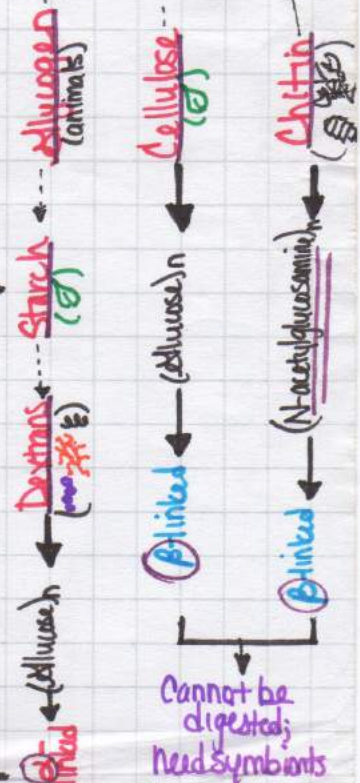 Glycogen
(animals)
Starch
Dextrans
(Glucose)n
linked
Cellulose
(Glucose)n
β-linked
Chitin
(N-acetylglucosamine)n
β-linked
Cannot be
digested;
need symbionts